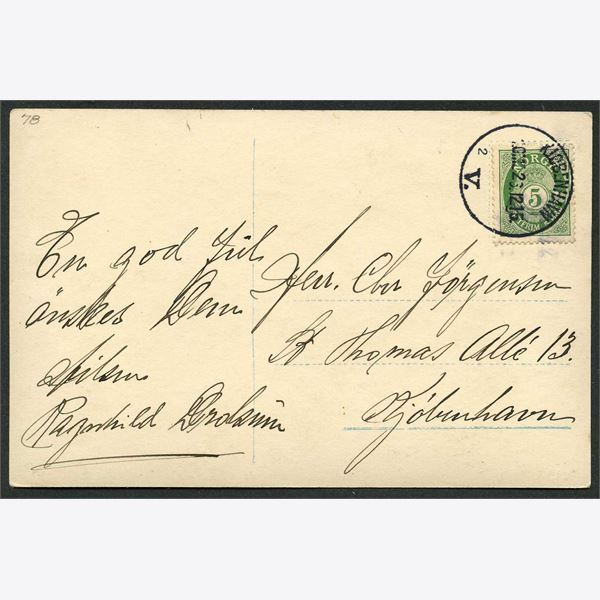 78
KJØBENHAVN
2
V.
NORGE
5
FRIM
En god Jul
ønskes Dem
Hilsen
Ragnhild
Herr. Chr Jörgensen
St Thomas Allé 13.
Kjöbenhavn